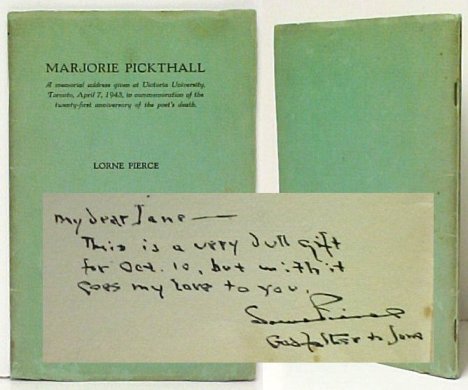 MARJORIE PICKTHALL
A memorial address given at Victoria University,
Toronto, April 7, 1943, in commemoration of the
twenty-first anniversary of the poet's death.
LORNE PIERCE
My dear Jane —
This is a very dull gift
for Oct. 10, but with it
goes my love to you.
Lorne Pierce
Godfather to Jane